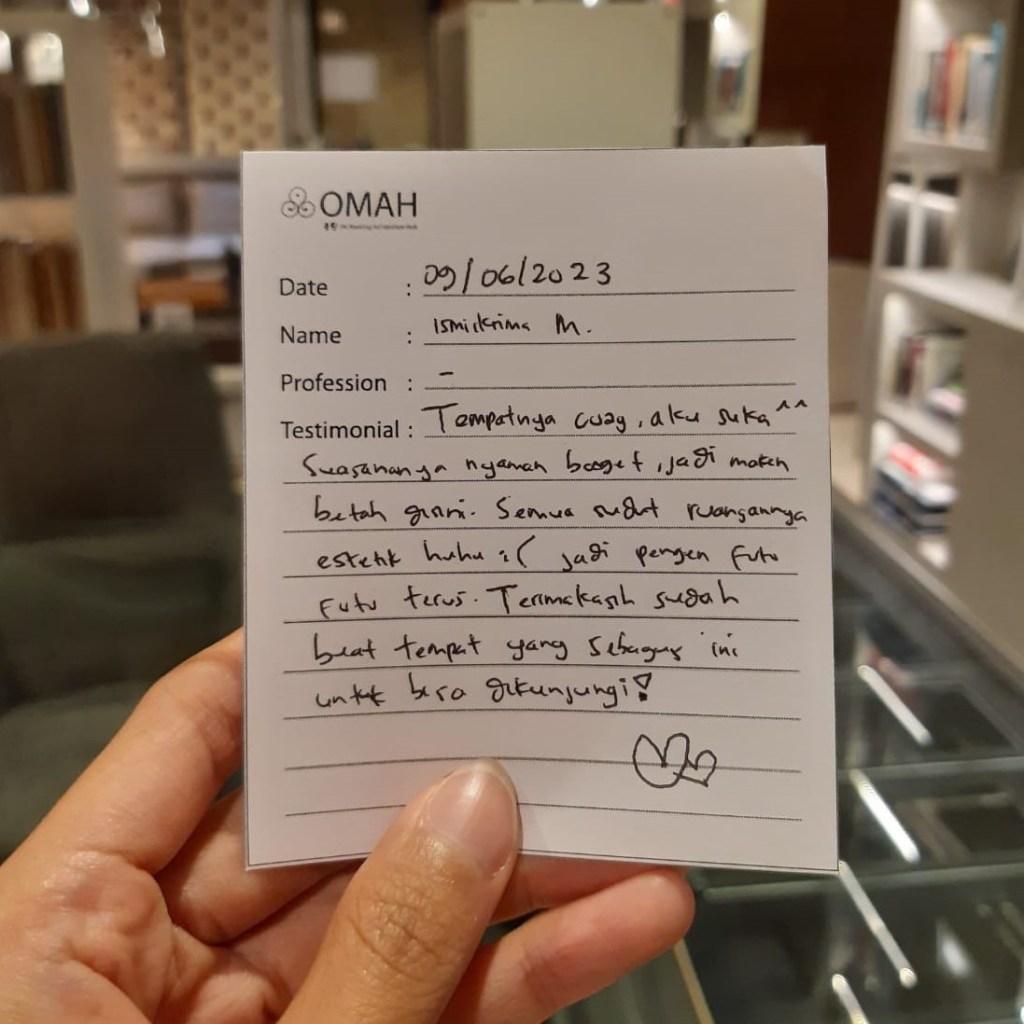 OMAH
Date : 09/06/2023
Name : Ismikrima M.
Profession : -
Testimonial : Tempatnya cozy, aku suka ^^
Suasananya nyaman banget, jadi makin
betah disini. Semua sudut ruangannya
estetik huhu :( jadi pengen futu
futu terus. Terimakasih sudah
buat tempat yang sebagus ini
untuk bisa dikunjungi!